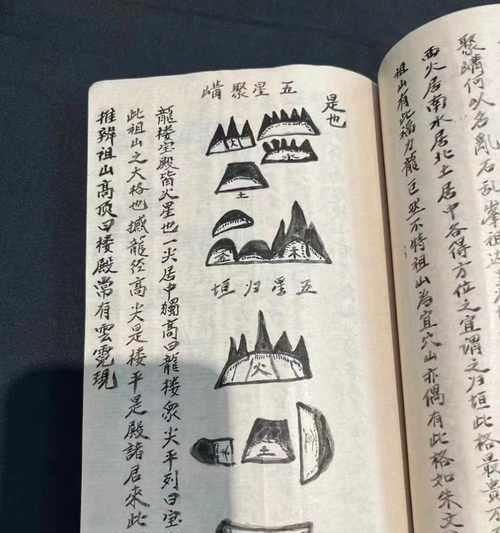 聚講何以名亂石
西火居南水居北土居中各得方位之宜謂之归垣此格最
祖山有此福力龍巨然不特祖山為宜穴山亦偶有此格如朱文
是也
五星聚講
火
水
土
金
木
五星归垣
火
土
龍楼宝殿皆火星也一尖居中獨高曰龍楼衆尖平列曰宝
此祖山之大格也撼龍径高尖是楼平是殿諸居來此
推辨祖山高頂曰楼殿常有雲霓現